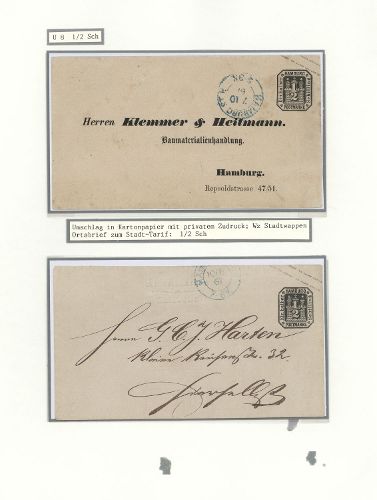 U 8 1/2 Sch
HAMBURG
1/2
POSTMARKE
Herren Klemmer & Heilmann.
Baumaterialienhandlung.
Hamburg.
Repsoldstrasse 47/51.
Umschlag in Kartonpapier mit privatem Zudruck; Wz Stadtwappen
Ortsbrief zum Stadt-Tarif: 1/2 Sch
HAMBURG
1/2
POSTMARKE
Herrn G. C. J. Harten
32.